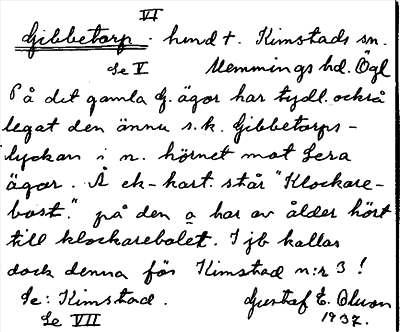 VI
Gibbetorp. hmd t. Kimstads sn.
Se V Memmings hd. Ögl
På det gamla G. ägor har tydl. också
legat den ännu s.k. Gibbetorps-
lyckan i n. hörnet mot Lera
ägor. Å ek-kart. står "Klockare-
bost." på den o har av ålder hört
till klockarebolet. I jb kallas
dock denna för Kimstad n:r 3!
Se: Kimstad. Gustaf E. Olsson
Se VII 1937.